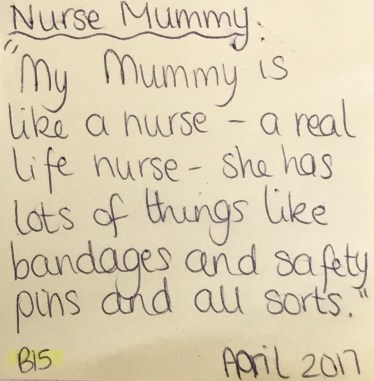 Nurse Mummy.
"My Mummy is
like a nurse - a real
life nurse - she has
lots of things like
bandages and safety
pins and all sorts."
B15 April 2017